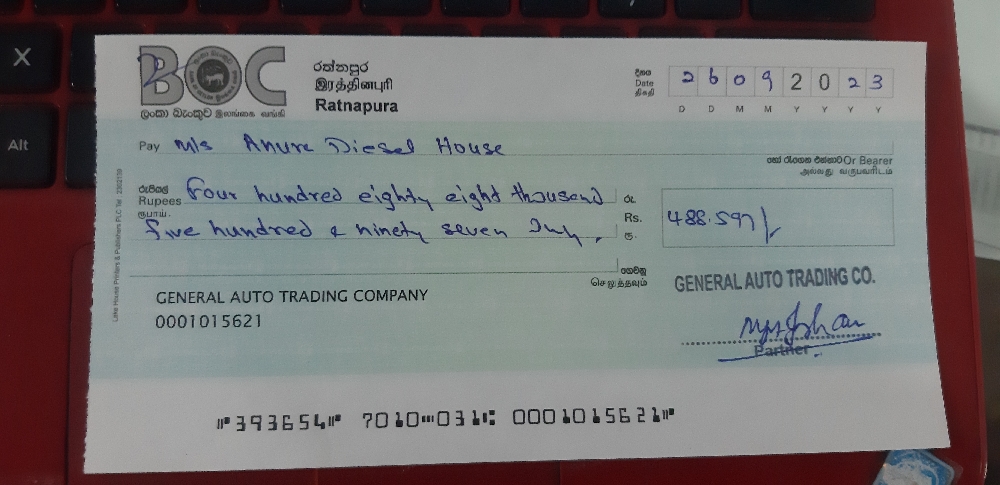 BOC
ලංකා බැංකුව இலங்கை வங்கி
රත්නපුර
இரத்தினபுரி
Ratnapura
දිනය
Date
திகதி
26092023
D D M M Y Y Y Y
Pay M/s Anura Diesel House
හෝ රැගෙන එන්නාට Or Bearer
அல்லது வருபவரிடம்
රුපියල්
Rupees Four hundred eighty eight thousand
ரூபாய்
five hundred & ninety seven Only.
රු.
Rs. 488.597/-
ரூ.
ගෙවනු
செலுத்தவும்
GENERAL AUTO TRADING COMPANY
0001015621
GENERAL AUTO TRADING CO.
Partner
Lake House Printers & Publishers PLC Tel
⑈393654⑈ 7010⑉031⑆ 0001015621⑈
X
Alt